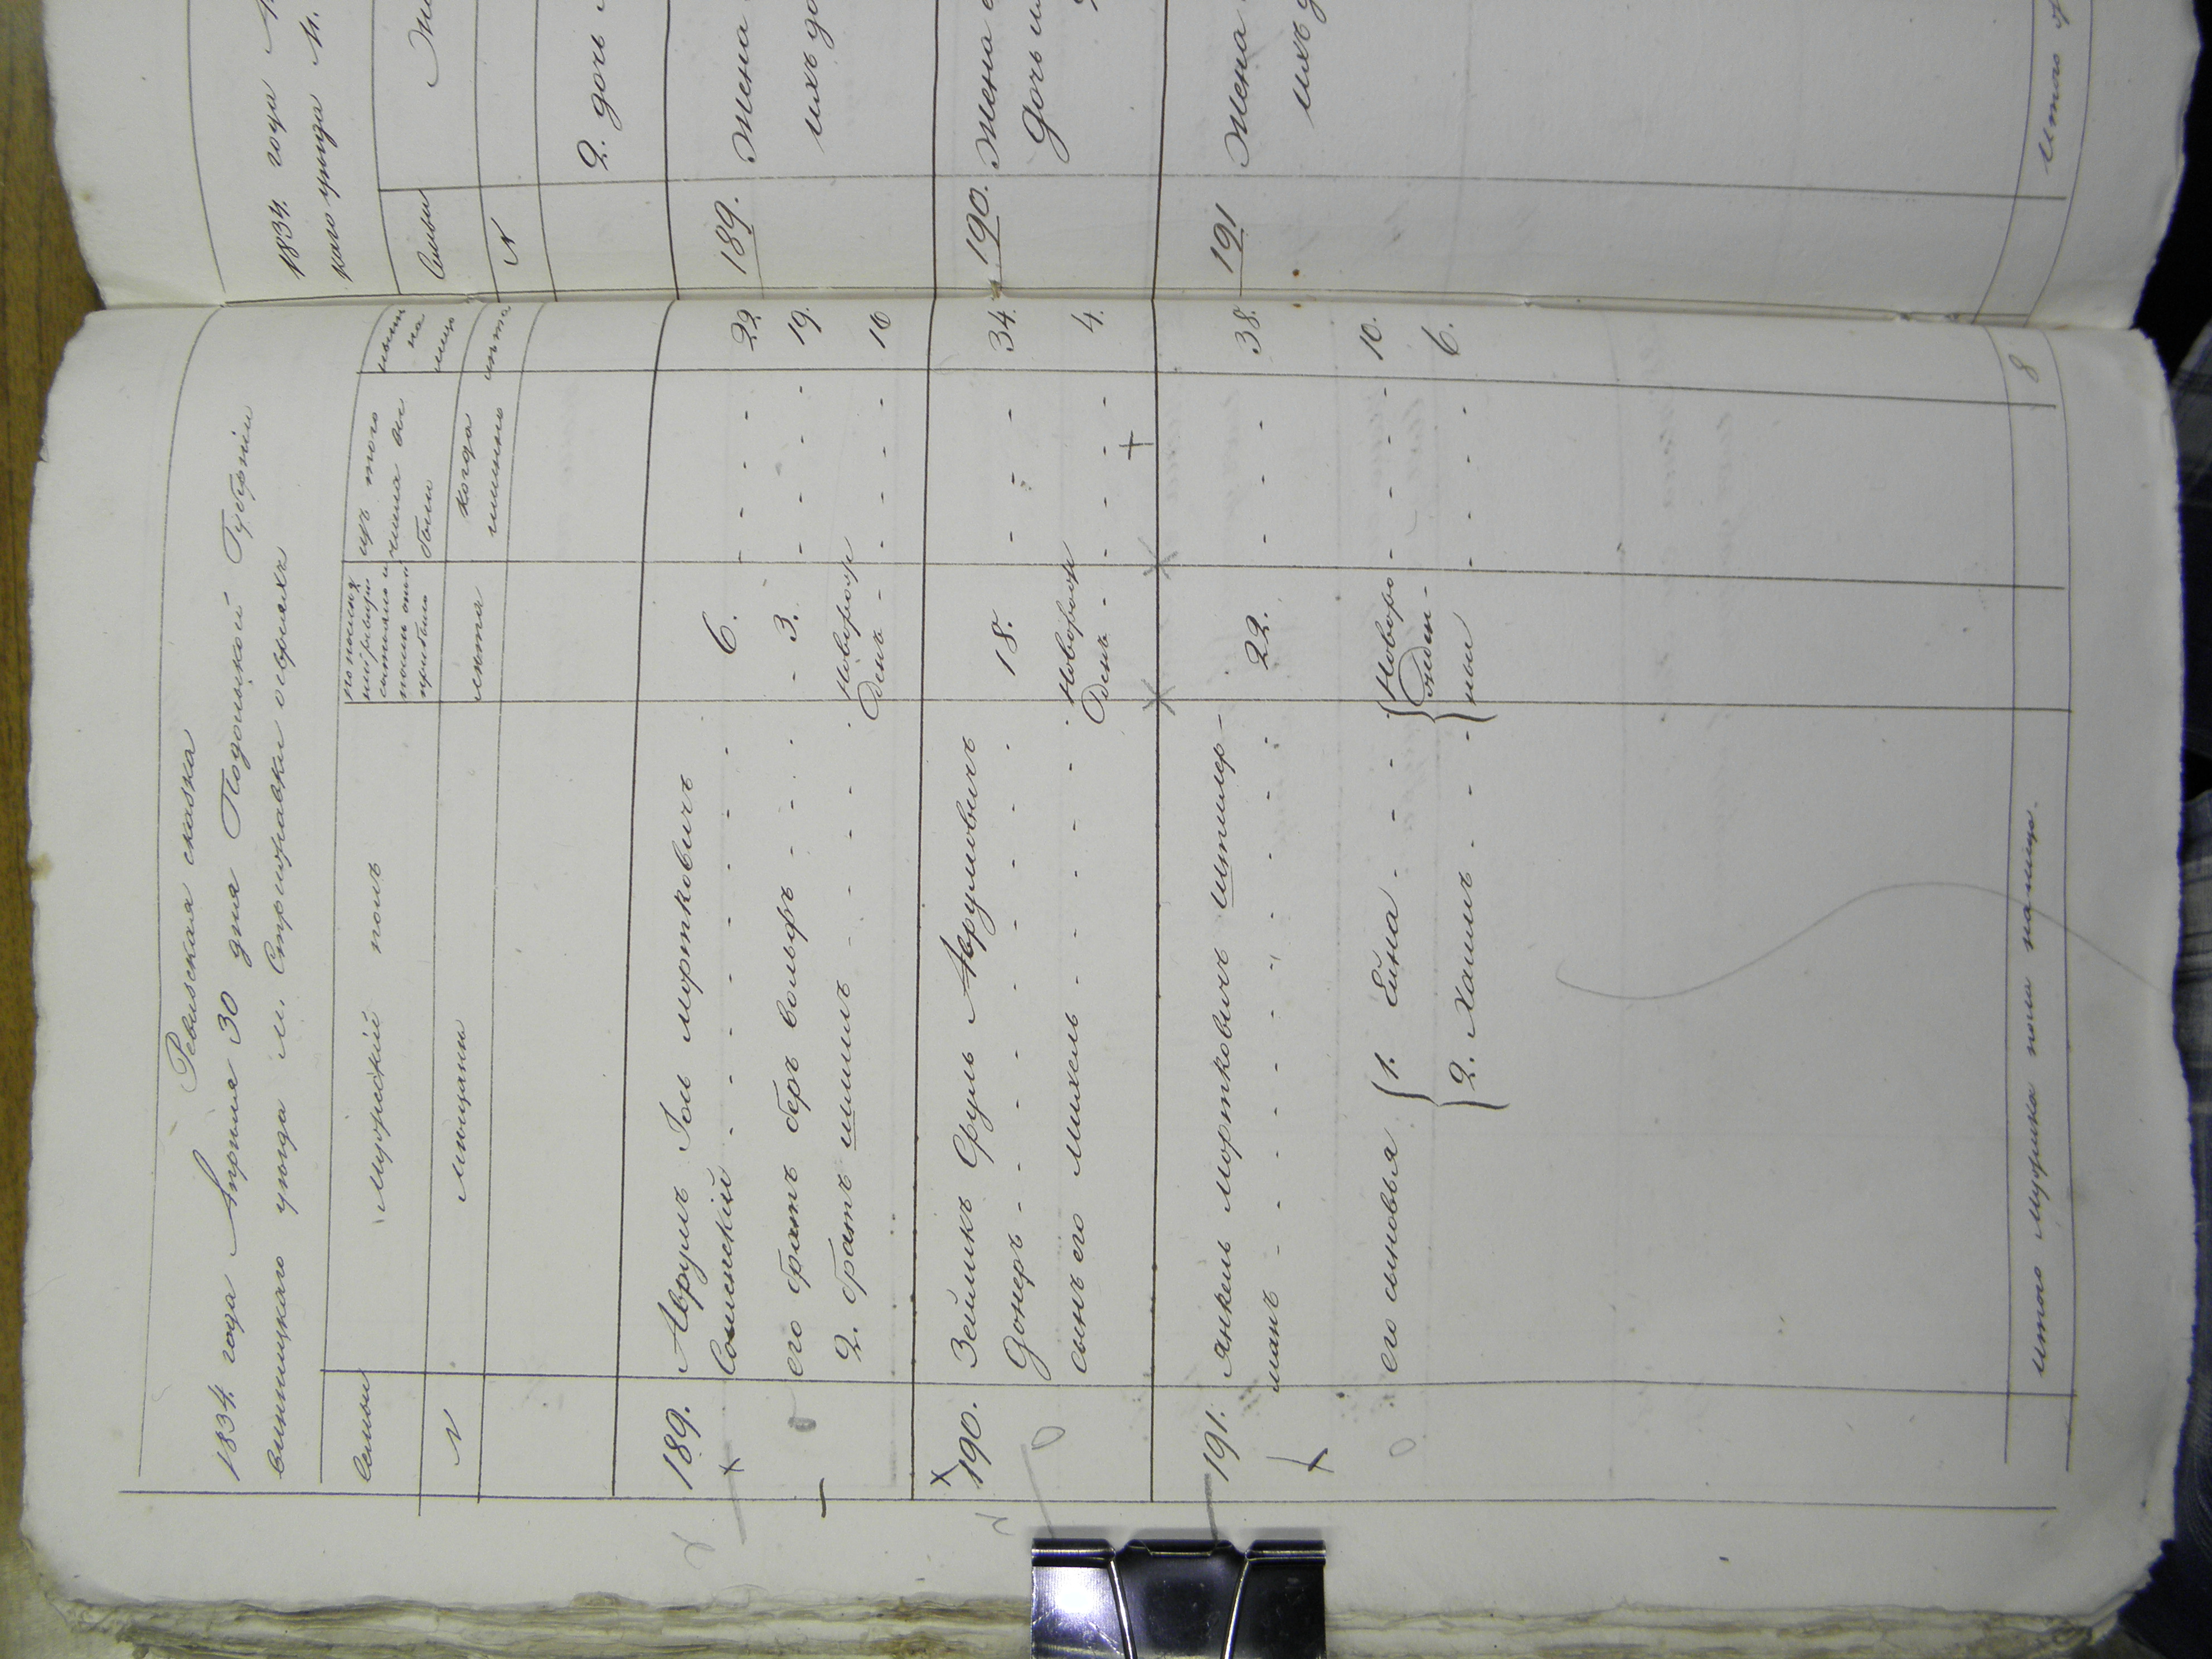 Ревизская сказка
1834. года Апреля 30 дня Подольской Губернии
Винницкого уезда м. Стрижавки о евреяхъ
Семьи
Мужеский полъ
по последней ревизии состояло и после оной прибыло
изъ того числа выбыло
ныне на лицо
N
мещане
лета
когда именно
лета
189. Аврумъ Іось Мортковичъ
6. - - - - 22.
его братъ беръ вольфъ - - - - 3. - - - - 19.
2. братъ шмиль - - - - Новорож
денъ - - - - - 16
190. Зейликъ Сруль Аврумовичъ
Донеръ - - - - - 18. - - - 34.
сынъ его Михель - - - - Новорож
денъ - - - - 4.
191. Янкель Мортковичъ Штилер-
манъ - - - - - 22. - - - 38.
его сыновья 1. Ейна - - - Новоро - - - - 10.
ждин-
2. Хаимъ - - - ные - - - 6.
итого мужеска пола налицо. 8
1834. года
каго уезда м.
Семьи
N
2. дочь
189. Жена
ихъ до
190. Жена
Дочь и
191 Жена
ихъ д
Итого